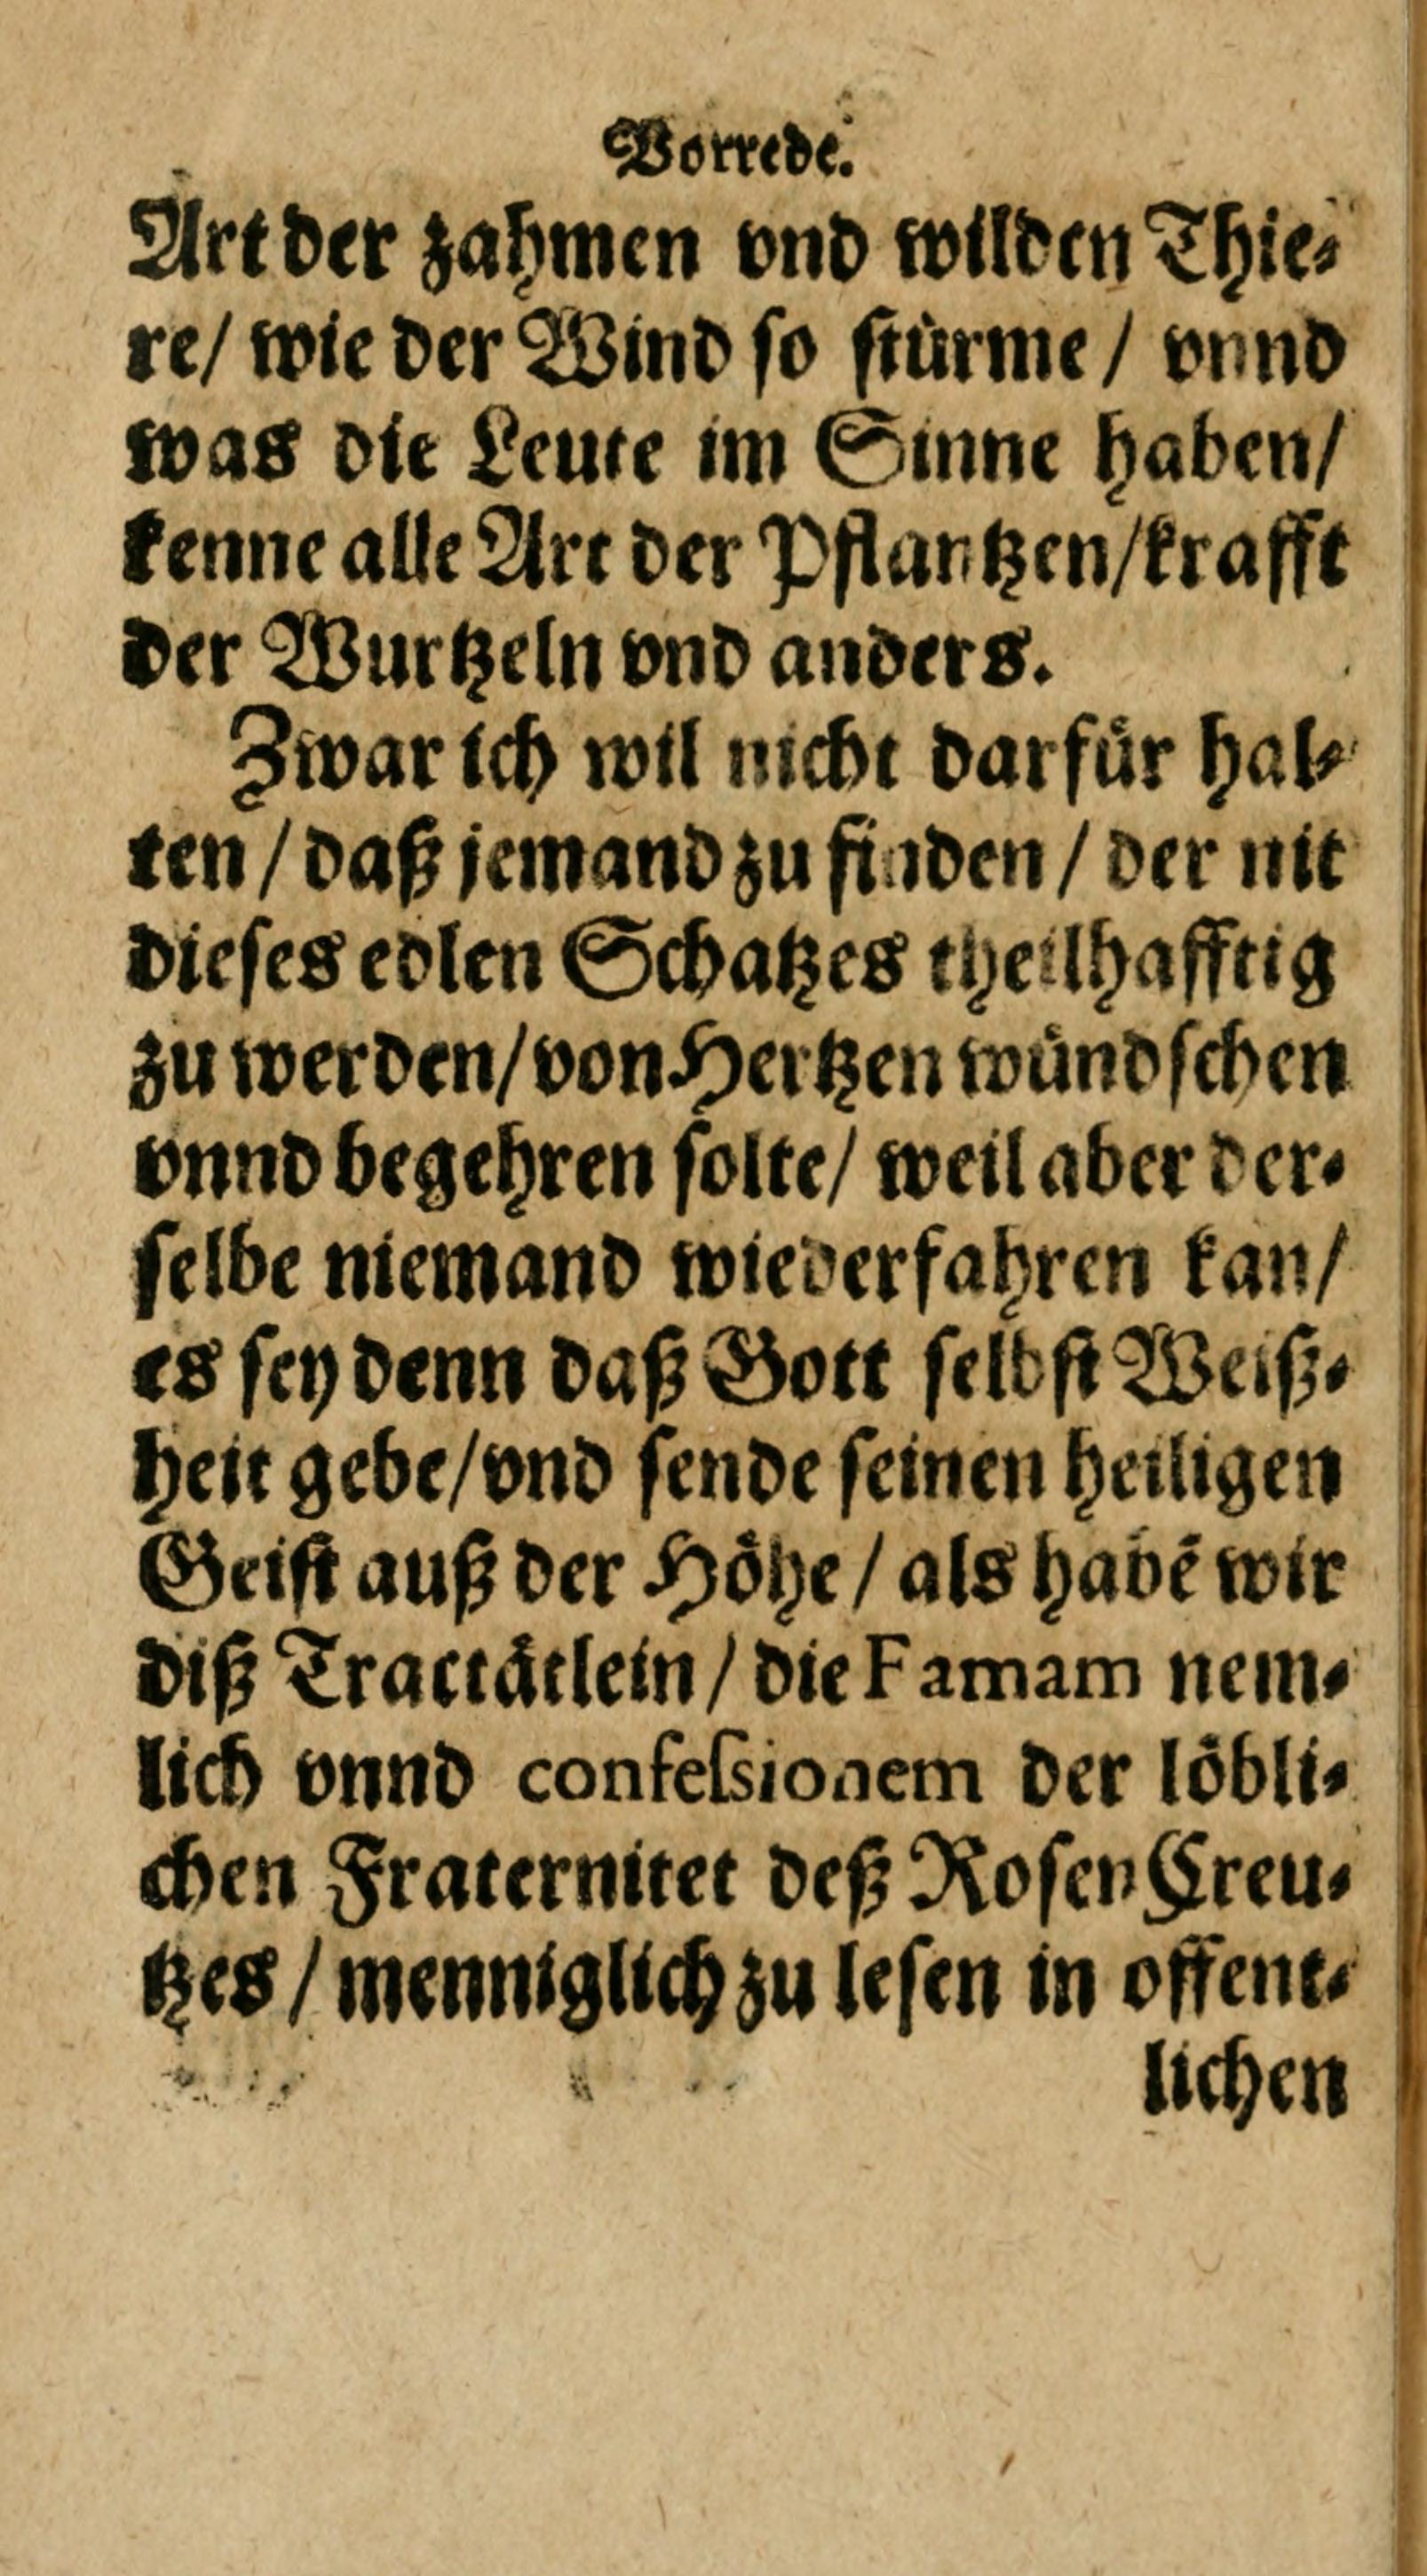 Vorrede.
Art der zahmen vnd wilden Thie-
re/ wie der Wind so stürme/ vnnd
was die Leute im Sinne haben/
kenne alle Art der Pflantzen/krafft
der Wurtzeln vnd anders.
Zwar ich wil nicht darfür hal-
ten/daß jemand zu finden/ der nit
dieses edlen Schatzes theilhafftig
zu werden/von Hertzen wündschen
vnnd begehren solte/ weil aber der-
selbe niemand wiederfahren kan/
es sey denn daß Gott selbst Weiß-
heit gebe/vnd sende seinen heiligen
Geist auß der Höhe/ als habē wir
diß Tractätlein/ die Famam nem-
lich vnnd confeſsionem der löbli-
chen Fraternitet deß Rosen Creu-
tzes/ menniglich zu lesen in offent-
lichen